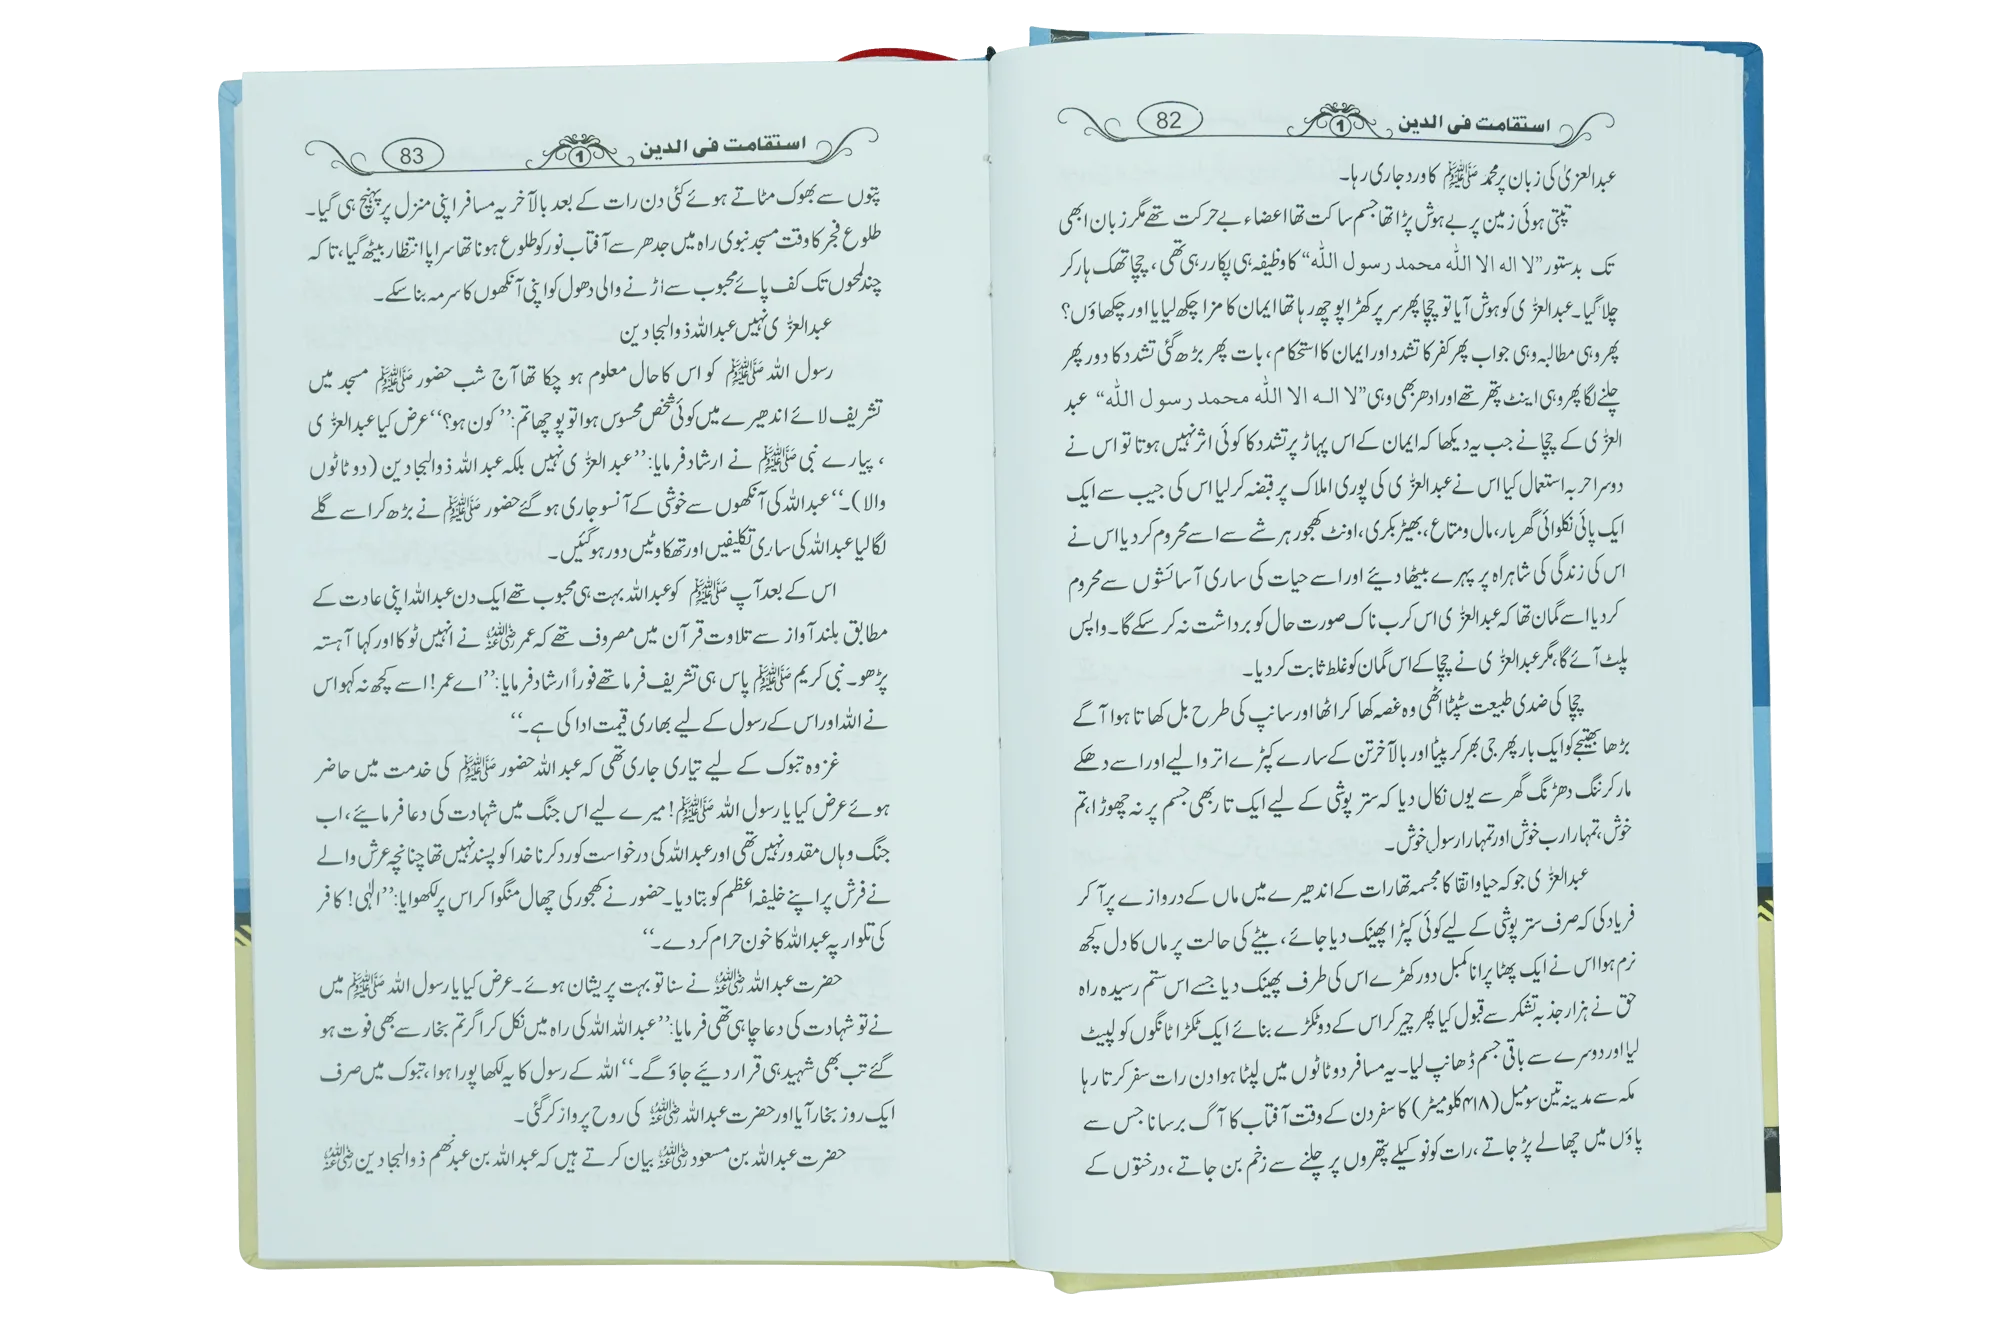 استقامت فی الدین 1 82
عبدالعزیٰ کی زبان پر محمد ﷺ کا ورد جاری رہا۔
تپتی ہوئی زمین پر بے ہوش پڑا تھا جسم ساکت تھا اعضاء بے حرکت تھے مگر زبان ابھی
تک بدستور ”لا اله الا الله محمد رسول الله“ کا وظیفہ ہی پکار رہی تھی، چچا تھک ہار کر
چلا گیا۔ عبدالعزّٰی کو ہوش آیا تو چچا پھر سر پر کھڑا پوچھ رہا تھا ایمان کا مزا چکھ لیا یا اور چکھاؤں؟
پھر وہی مطالبہ وہی جواب پھر کفر کا تشدد اور ایمان کا استحکام، بات پھر بڑھ گئی تشدد کا دور پھر
چلنے لگا پھر وہی اینٹ پتھر تھے اور ادھر بھی وہی ”لا الہ الا الله محمد رسول الله“ عبد
العزّٰی کے چچا نے جب یہ دیکھا کہ ایمان کے اس پہاڑ پر تشدد کا کوئی اثر نہیں ہوتا تو اس نے
دوسرا حربہ استعمال کیا اس نے عبدالعزّٰی کی پوری املاک پر قبضہ کر لیا اس کی جیب سے ایک
ایک پائی نکلوائی گھر بار، مال و متاع، بھیڑ بکری، اونٹ کھجور ہر شے سے اسے محروم کر دیا اس نے
اس کی زندگی کی شاہراہ پر پہرے بیٹھا دیئے اور اسے حیات کی ساری آسائشوں سے محروم
کر دیا اسے گمان تھا کہ عبدالعزّٰی اس کرب ناک صورت حال کو برداشت نہ کر سکے گا۔ واپس
پلٹ آئے گا، مگر عبدالعزّٰی نے چچا کے اس گمان کو غلط ثابت کر دیا۔
چچا کی ضدی طبیعت سٹپٹا اٹھی وہ غصہ کھا کر اٹھا اور سانپ کی طرح بل کھاتا ہوا آگے
بڑھا بھتیجے کو ایک بار پھر جی بھر کر پیٹا اور بالآخر تن کے سارے کپڑے اتر والیے اور اسے دھکے
مار کر ننگ دھڑنگ گھر سے یوں نکال دیا کہ ستر پوشی کے لیے ایک تار بھی جسم پر نہ چھوڑا، تم
خوش، تمہارا رب خوش اور تمہارا رسول خوش۔
عبدالعزّٰی جو کہ حیا و اتقا کا مجسمہ تھا رات کے اندھیرے میں ماں کے دروازے پر آ کر
فریاد کی کہ صرف ستر پوشی کے لیے کوئی کپڑا پھینک دیا جائے، بیٹے کی حالت پر ماں کا دل کچھ
نرم ہوا اس نے ایک پھٹا پرانا کمبل دور کھڑے اس کی طرف پھینک دیا جسے اس ستم رسیدہ راہ
حق نے ہزار جذبہ تشکر سے قبول کیا پھر چیر کر اس کے دو ٹکڑے بنائے ایک ٹکڑا ٹانگوں کو لپیٹ
لیا اور دوسرے سے باقی جسم ڈھانپ لیا۔ یہ مسافر دو ٹاٹوں میں لپٹا ہوا دن رات سفر کرتا رہا
مکہ سے مدینہ تین سو میل (۴۱۸ کلومیٹر) کا سفر دن کے وقت آفتاب کا آگ برسانا جس سے
پاؤں میں چھالے پڑ جاتے، رات کو نوکیلے پتھروں پر چلنے سے زخم بن جاتے، درختوں کے
استقامت فی الدین 1 83
پتوں سے بھوک مٹاتے ہوئے کئی دن رات کے بعد بالآخر یہ مسافر اپنی منزل پر پہنچ ہی گیا۔
طلوع فجر کا وقت مسجد نبوی راہ میں جدھر سے آفتاب نور کو طلوع ہونا تھا سراپا انتظار بیٹھ گیا، تا کہ
چند لمحوں تک کف پائے محبوب سے اڑنے والی دھول کو اپنی آنکھوں کا سرمہ بنا سکے۔
عبدالعزّٰی نہیں عبداللہ ذوالبجادین
رسول اللہ ﷺ کو اس کا حال معلوم ہو چکا تھا آج شب حضور ﷺ مسجد میں
تشریف لائے اندھیرے میں کوئی شخص محسوس ہوا تو پوچھا تم: ’’کون ہو؟‘‘ عرض کیا عبدالعزّٰی
، پیارے نبی ﷺ نے ارشاد فرمایا: ’’عبدالعزّٰی نہیں بلکہ عبداللہ ذوالبجادین (دو ٹاٹوں
والا)۔‘‘ عبداللہ کی آنکھوں سے خوشی کے آنسو جاری ہو گئے حضور ﷺ نے بڑھ کر اسے گلے
لگا لیا عبداللہ کی ساری تکلیفیں اور تھکاوٹیں دور ہو گئیں۔
اس کے بعد آپ ﷺ کو عبداللہ بہت ہی محبوب تھے ایک دن عبداللہ اپنی عادت کے
مطابق بلند آواز سے تلاوت قرآن میں مصروف تھے کہ عمر رضی اللہ عنہ نے انہیں ٹوکا اور کہا آہستہ
پڑھو۔ نبی کریم ﷺ پاس ہی تشریف فرما تھے فوراً ارشاد فرمایا: ’’اے عمر! اسے کچھ نہ کہو اس
نے اللہ اور اس کے رسول کے لیے بھاری قیمت ادا کی ہے۔‘‘
غزوہ تبوک کے لیے تیاری جاری تھی کہ عبداللہ حضور ﷺ کی خدمت میں حاضر
ہوئے عرض کیا یا رسول اللہ ﷺ! میرے لیے اس جنگ میں شہادت کی دعا فرمایئے، اب
جنگ وہاں مقدور نہیں تھی اور عبداللہ کی درخواست کو رد کرنا خدا کو پسند نہیں تھا چنانچہ عرش والے
نے فرش پر اپنے خلیفہ اعظم کو بتا دیا۔ حضور نے کھجور کی چھال منگوا کر اس پر لکھوایا: ’’الٰہی! کافر
کی تلوار پہ عبداللہ کا خون حرام کر دے۔‘‘
حضرت عبداللہ رضی اللہ عنہ نے سنا تو بہت پریشان ہوئے۔ عرض کیا یا رسول اللہ ﷺ میں
نے تو شہادت کی دعا چاہی تھی فرمایا: ’’عبداللہ اللہ کی راہ میں نکل کر اگر تم بخار سے بھی فوت ہو
گئے تب بھی شہید ہی قرار دیئے جاؤ گے۔‘‘ اللہ کے رسول کا یہ لکھا پورا ہوا، تبوک میں صرف
ایک روز بخار آیا اور حضرت عبداللہ رضی اللہ عنہ کی روح پرواز کر گئی۔
حضرت عبداللہ بن مسعود رضی اللہ عنہ بیان کرتے ہیں کہ عبداللہ بن عبدنھم ذوالبجادین رضی اللہ عنہ